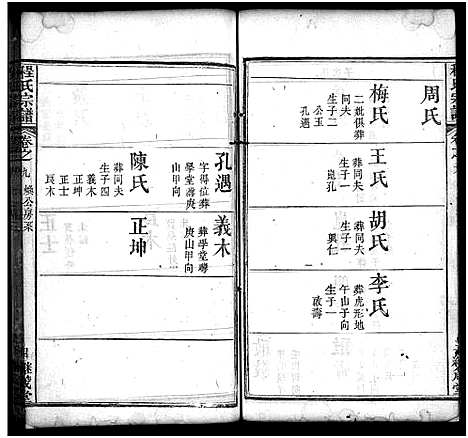 周氏
梅氏
二妣俱葬
同夫
生子二
公玉
孔遇
王氏
葬同夫
生子一
胡氏
葬同夫
生子一
興仁
李氏
葬虎形地
午山子向
生子一
啟壽
程氏宗譜
卷之九
煥公房系
孔遇
字得位葬
學堂灣庚
山甲向
陳氏
葬同夫
生子四
義木
正坤
正士
長木
義木
葬學堂灣
庚山甲向
正坤